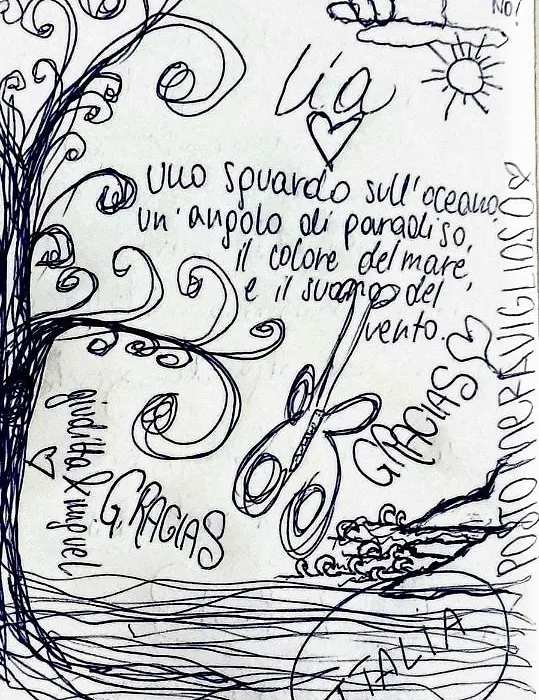 NO!
lia
Uno sguardo sull'oceano,
un'angolo di paradiso,
il colore del mare,
e il suono del
vento.
GRACIAS
POSTO MERAVIGLIOSO
giuditta & miguel
GRACIAS
ITALIA